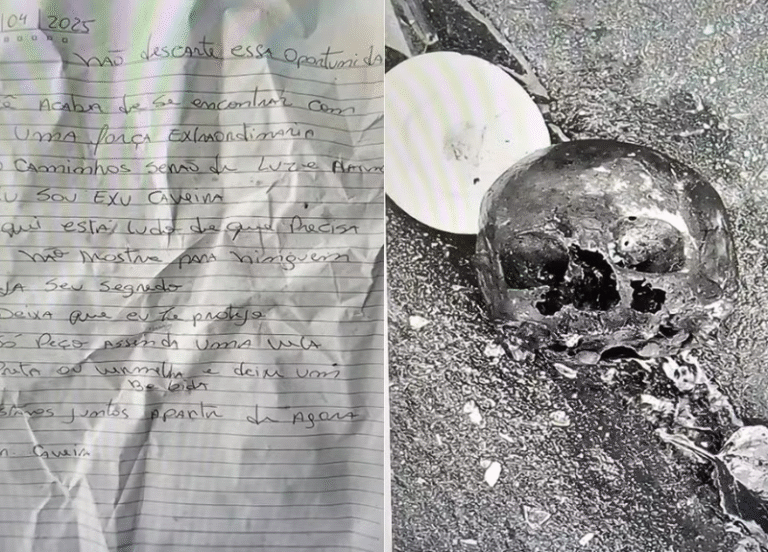 |04|2025
Não descarte essa oportunida
ê Acaba de se encontrar com
UMA força Extraordinaria
Caminhos serão de Luz e
u Sou Exu Caveira
qui está tudo de que Precisa
Não mostre para ninguem
JA Seu segredo
Deixa que eu te proteja
só Peço Acenda UMA vela
Preta ou vermelha e deixe um
Bebida
juntos Apartir de Agora
Caveir